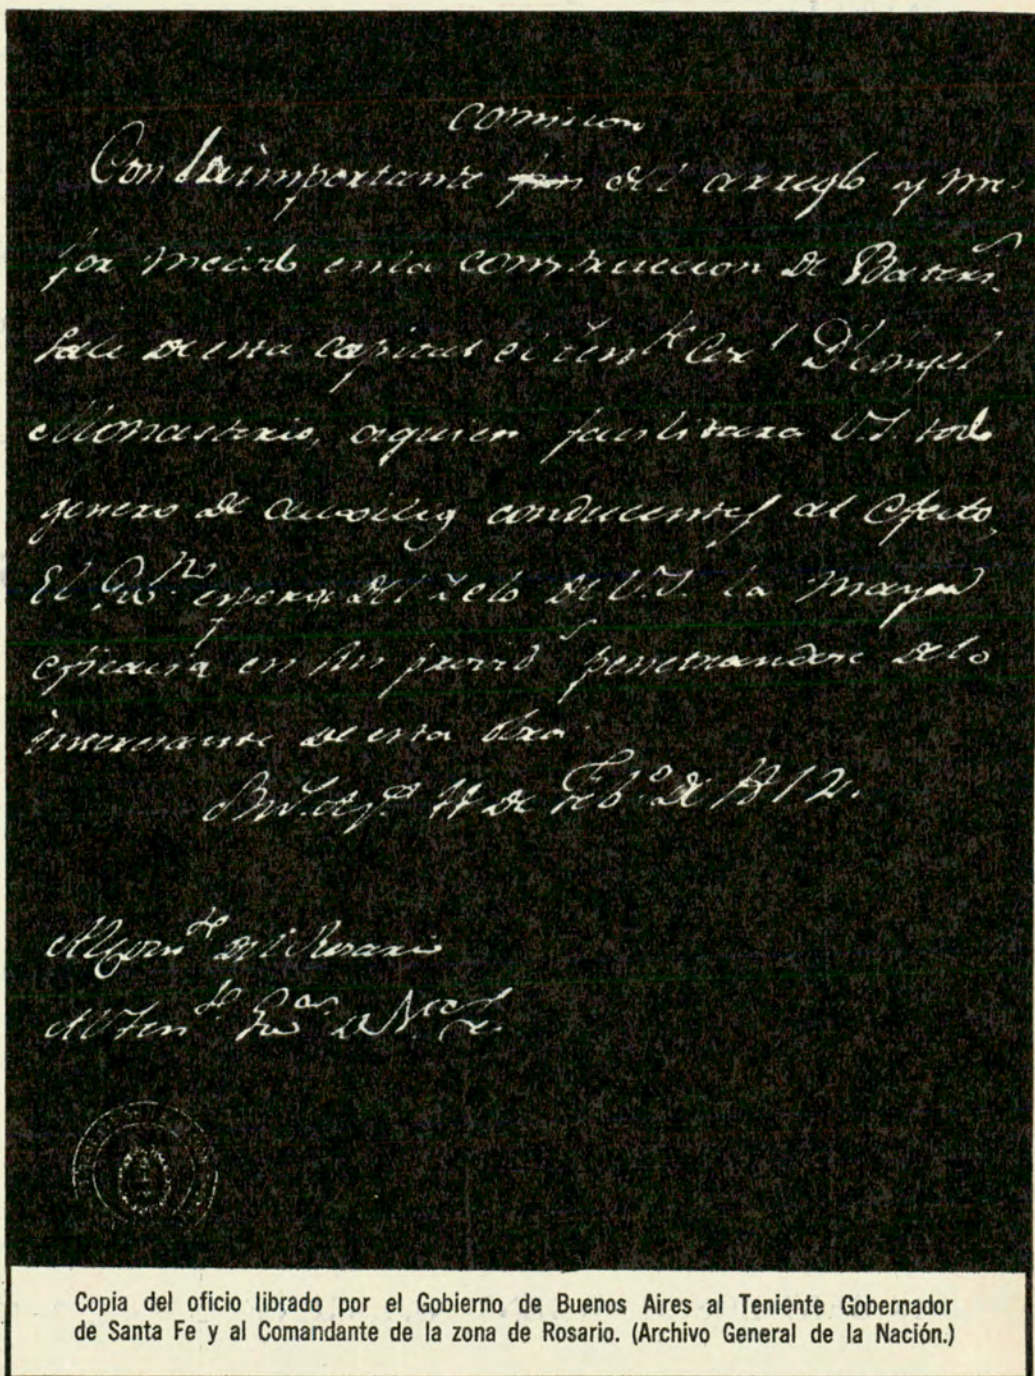 comision
Con la importante fin del arreglo y me-
jor método en la construccion de Baters.
sale de esta capital el tente. Corl. Dn. Angel
Monasterio, a quien facilitara V.S. todo
genero de auxilios conducentes al efecto,
El Gobno. espera del zelo de V.S. la mayor
eficacia en sus provids. penetrandose de lo
interesante de esta obra.
Feb.o de 1812.
del Rosario
Al Tente.
Copia del oficio librado por el Gobierno de Buenos Aires al Teniente Gobernador
de Santa Fe y al Comandante de la zona de Rosario. (Archivo General de la Nación.)